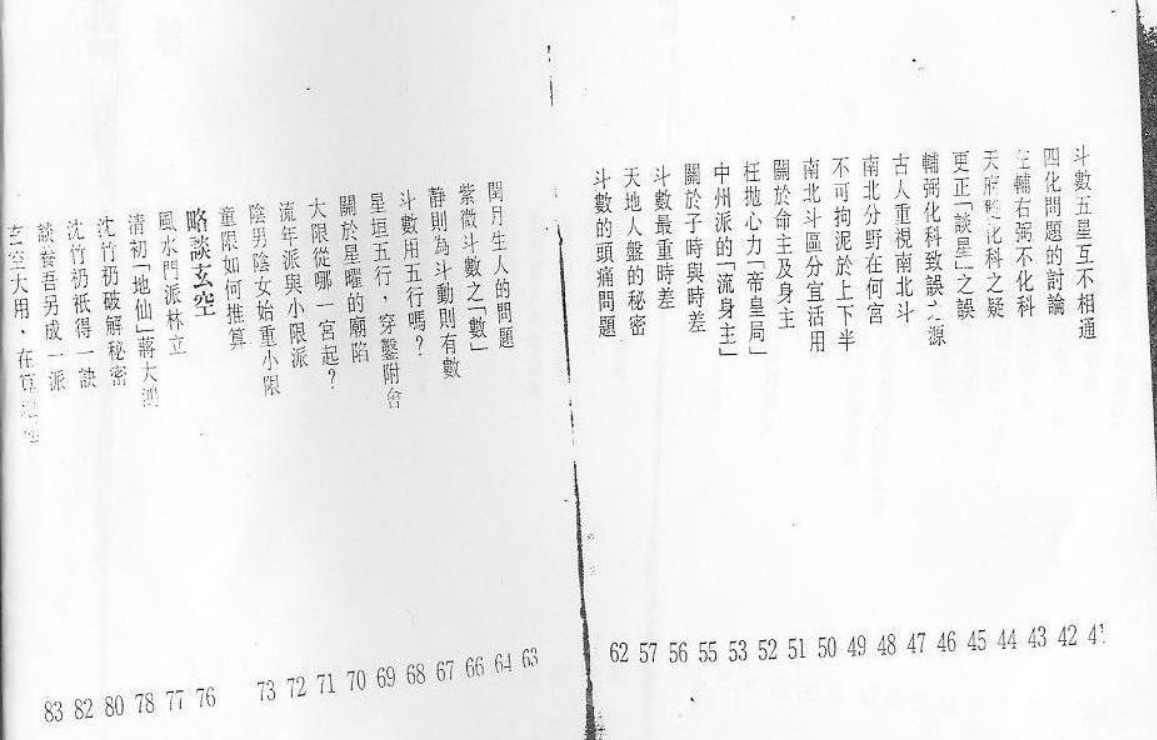 斗數五星互不相通 41
四化問題的討論 42
左輔右弼不化科 43
天府 化科之疑 44
更正「談星」之誤 45
輔弼化科致誤之源 46
古人重視南北斗 47
南北分野在何宮 48
不可拘泥於上下半 49
南北斗區分宜活用 50
關於命主及身主 51
枉拋心力「帝皇局」 52
中州派的「流身主」 53
關於子時與時差 55
斗數最重時差 56
天地人盤的秘密 57
斗數的頭痛問題 62
閏月生人的問題 63
紫微斗數之「數」 64
靜則為斗動則有數 66
斗數用五行嗎？ 67
星垣五行，穿鑿附會 68
關於星曜的廟陷 69
大限從哪一宮起？ 70
流年派與小限派 71
陰男陰女始重小限 72
童限如何推算 73
略談玄空
風水門派林立 76
清初「地仙」蔣大鴻 77
沈竹礽破解秘密 78
沈竹礽祇得一訣 80
談養吾另成一派 82
玄空大用，在 83